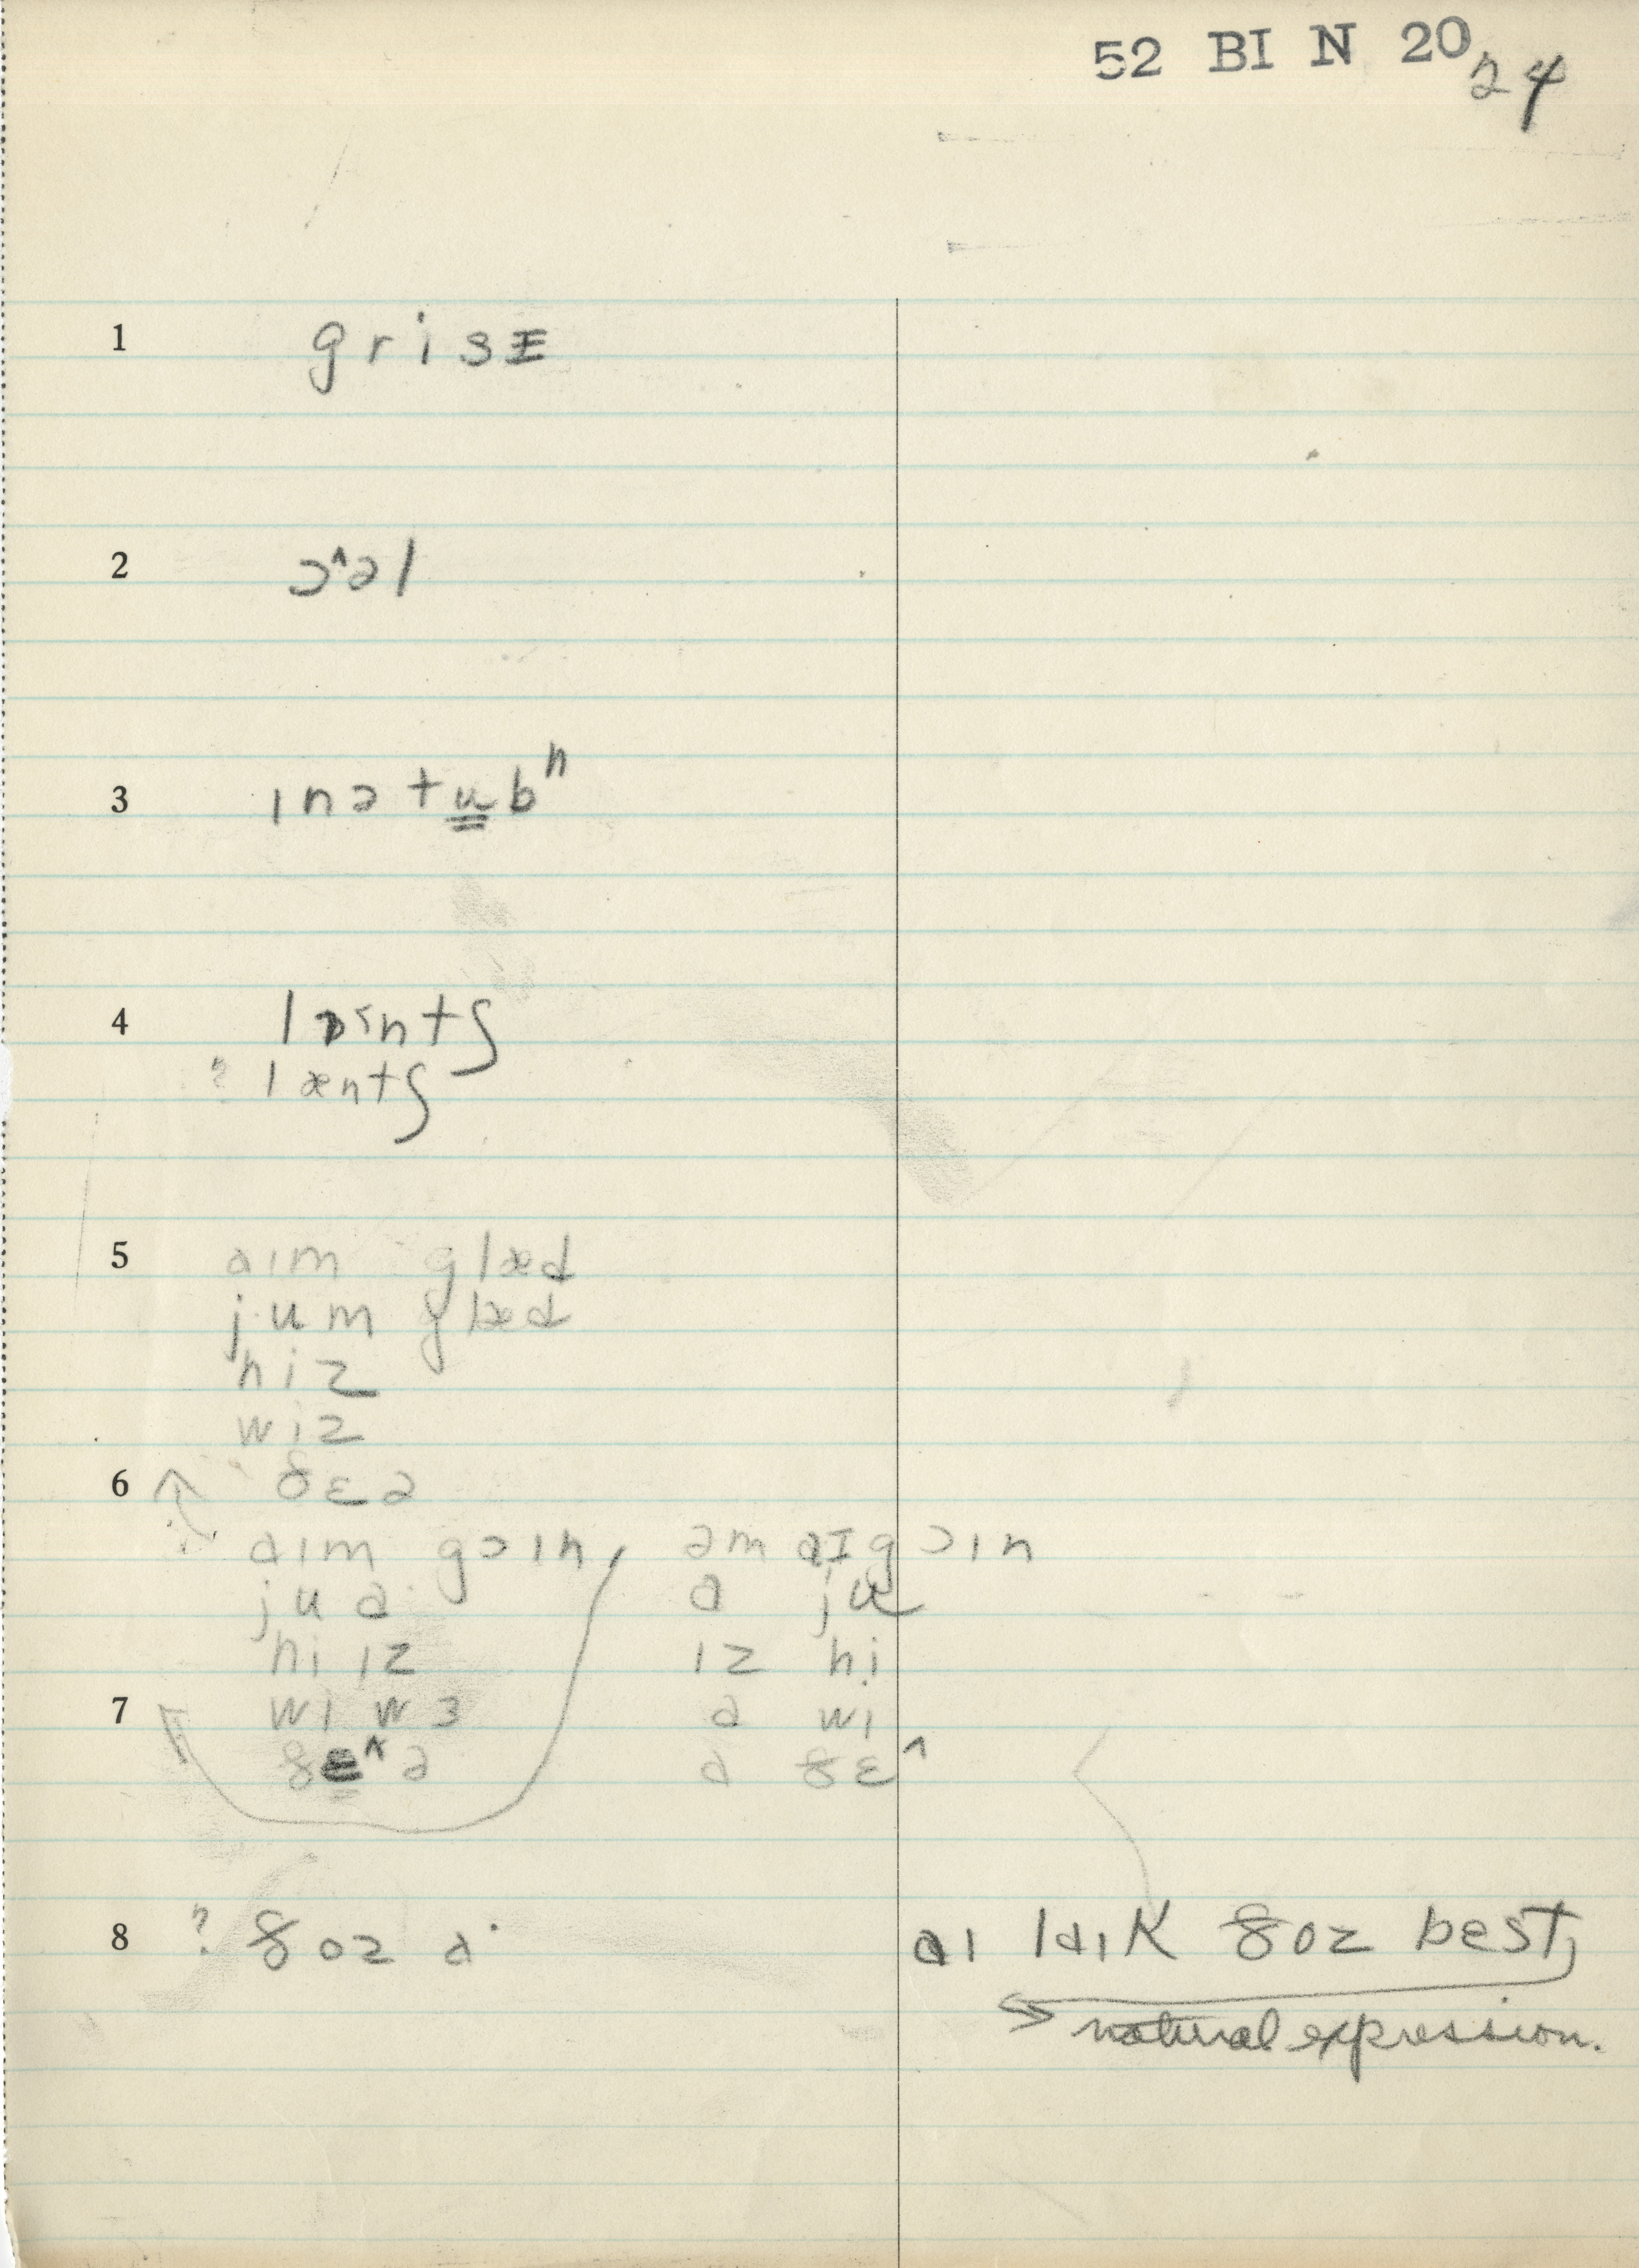 52 BI N 20
24
1 grisɪ
2 ɔ^əl
3 ɪnətub^n
4 lɒ˂ntʃ
? læntʃ
5 aɪm glæd
jum glæd
hiz
wiz
6 ðɛə
aɪm goɪn, əm aɪ goɪn
ju ə ə ju
hi ɪz ɪz hi
7 wi wɜ ə wi
ðɛ^ə ə ðɛ^
8 ? ðoz a· aɪ laɪk ðoz best,
natural expression.